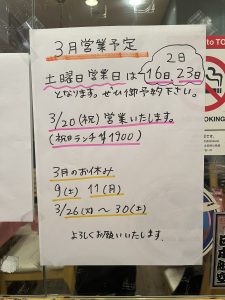 3月営業予定
2日
土曜日営業日は 16日 23日
となります。ぜひ御予約下さい。
3/20(祝) 営業いたします。
(祝日ランチ ¥1900)
3月のお休み
9(土) 11(月)
3/26(火)〜30(土)
よろしくお願いいたします。
to TO
OKING